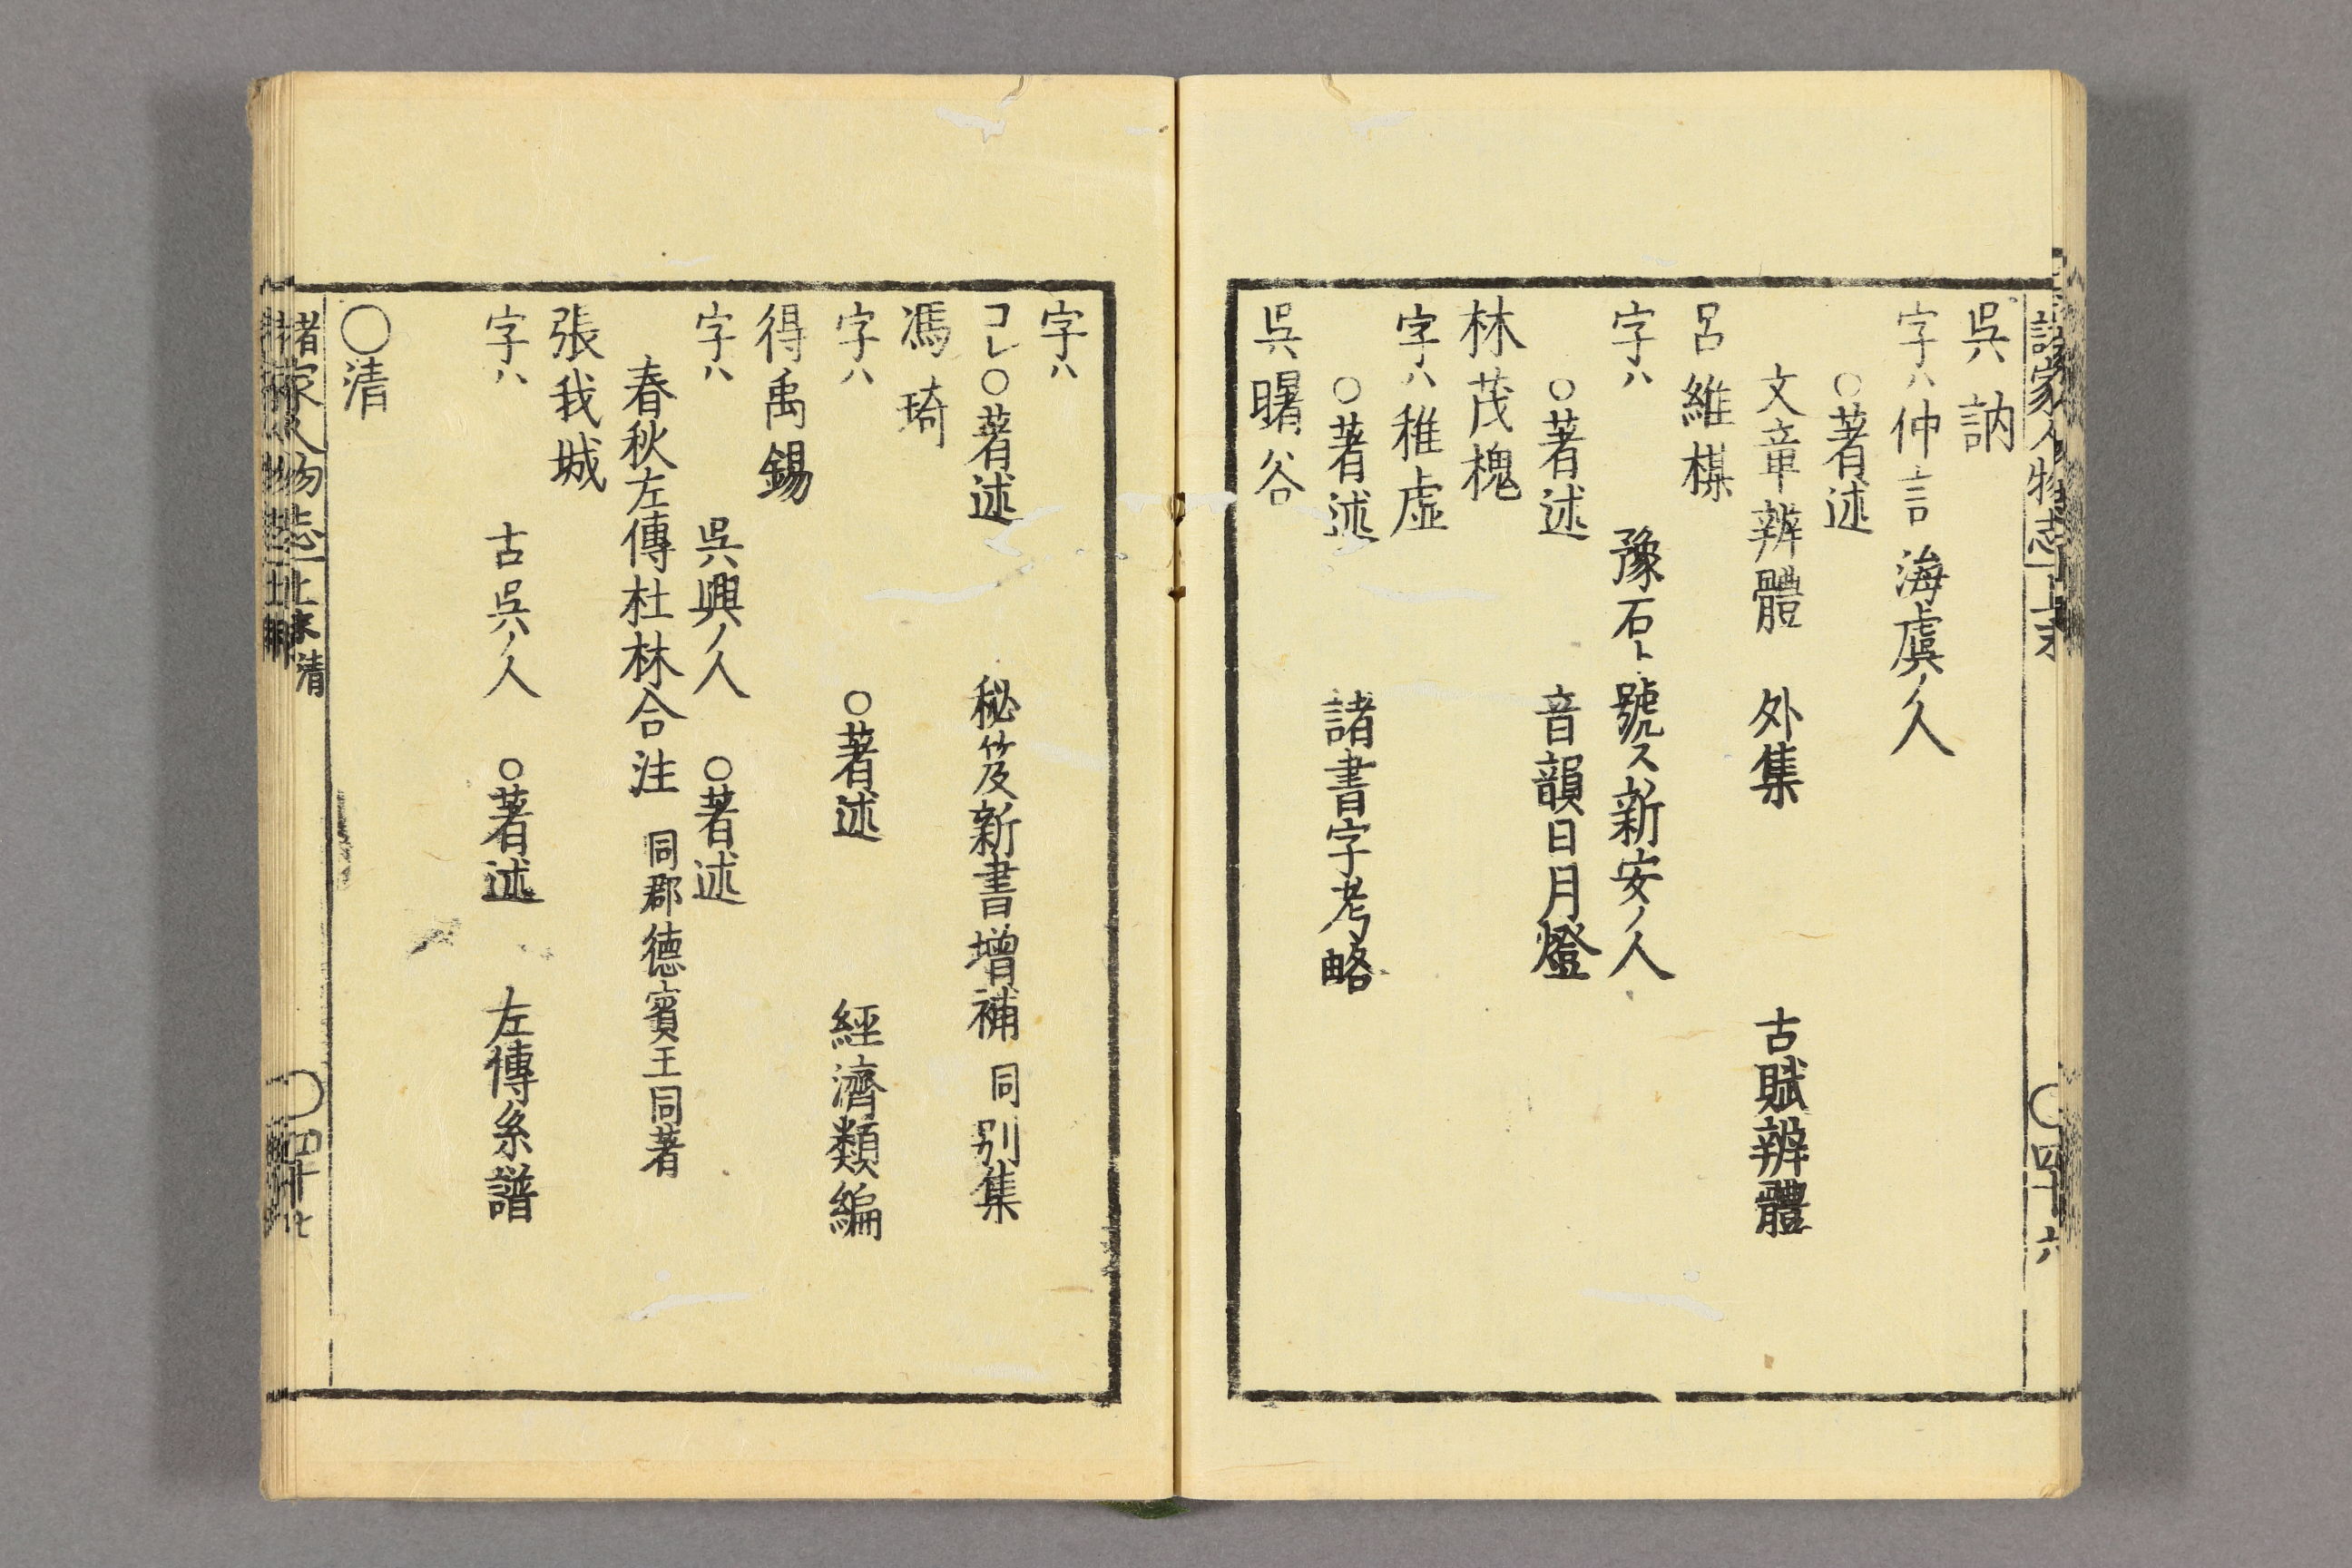 呉訥
字ハ仲言海虞ノ人
○著述
文章辨體　外集　古賦辨體
呂維楳
字ハ　豫石ト號ス新安ノ人
○著述　音韻日月燈
林茂槐
字ハ稚虚
○著述　諸書字考略
呉曙谷
字ハ
コレ○著述　秘笈新書増補　同別集
馮琦
字ハ　○著述　經濟類編
得禹錫
字ハ　呉興ノ人　○著述
春秋左傳杜林合注　同郡德賓王同著
張我城
字ハ　古呉ノ人　○著述　左傳系譜
○清